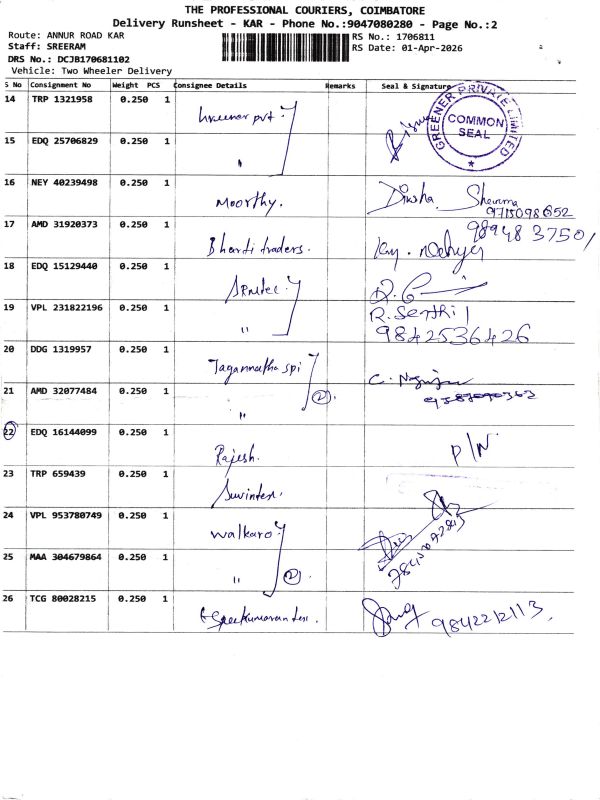 THE PROFESSIONAL COURIERS, COIMBATORE
Delivery Runsheet - KAR - Phone No.:9047080280 - Page No.:2
Route: ANNUR ROAD KAR
RS No.: 1706811
Staff: SREERAM
RS Date: 01-Apr-2026
DRS No.: DCJB170681102
Vehicle: Two Wheeler Delivery
S No Consignment No Weight PCS Consignee Details Remarks Seal & Signature
14 TRP 1321958 0.250 1
GREENER PRIVATE LIMITED
COMMON SEAL
15 EDQ 25706829 0.250 1 "
16 NEY 40239498 0.250 1 Moorthy. Diksha Sharma
9715098652
17 AMD 31920373 0.250 1 Bharti traders.
989483750
18 EDQ 15129440 0.250 1
19 VPL 231822196 0.250 1 " R. Senthil
9842536426
20 DDG 1319957 0.250 1 Jagannatha spi
21 AMD 32077484 0.250 1 " 2
22 EDQ 16144099 0.250 1 Rajesh. P/N.
23 TRP 659439 0.250 1
24 VPL 953780749 0.250 1 Walkaro
25 MAA 304679864 0.250 1 " 2
26 TCG 80028215 0.250 1 Sreekumaran tex.